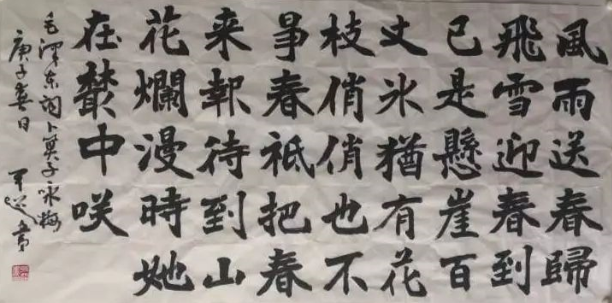 風雨送春歸
飛雪迎春到
已是懸崖百
丈冰猶有花
枝俏俏也不
爭春祗把春
来報待到山
花爛漫時她
在叢中咲
毛澤东詞卜算子咏梅
庚子春日